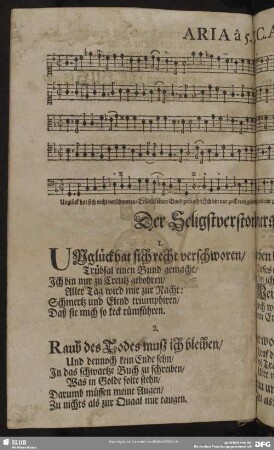 ARIA à 5. C. A
Unglück hat sich recht verschworen/ Trübsal einen Bund gemacht/ Ich bin nur zu Creutz gebohren
Der Seligstverstorb
1.
UNglück hat sich recht verschworen/
Trübsal einen Bund gemacht/
Ich bin nur zu Creutz gebohren/
Aller Tag wird mir zur Nacht:
Schmertz und Elend triumphiren/
Daß sie mich so
2.
Raub des Todes muß ich bleiben/
Und dennoch kein Ende sehn/
In das schwartze Buch zu schreiben/
Was in Golde solte stehn/
Darumb müssen meine Augen/
Zu nichts als zur Quaal mir taugen.
SLUB
DFG